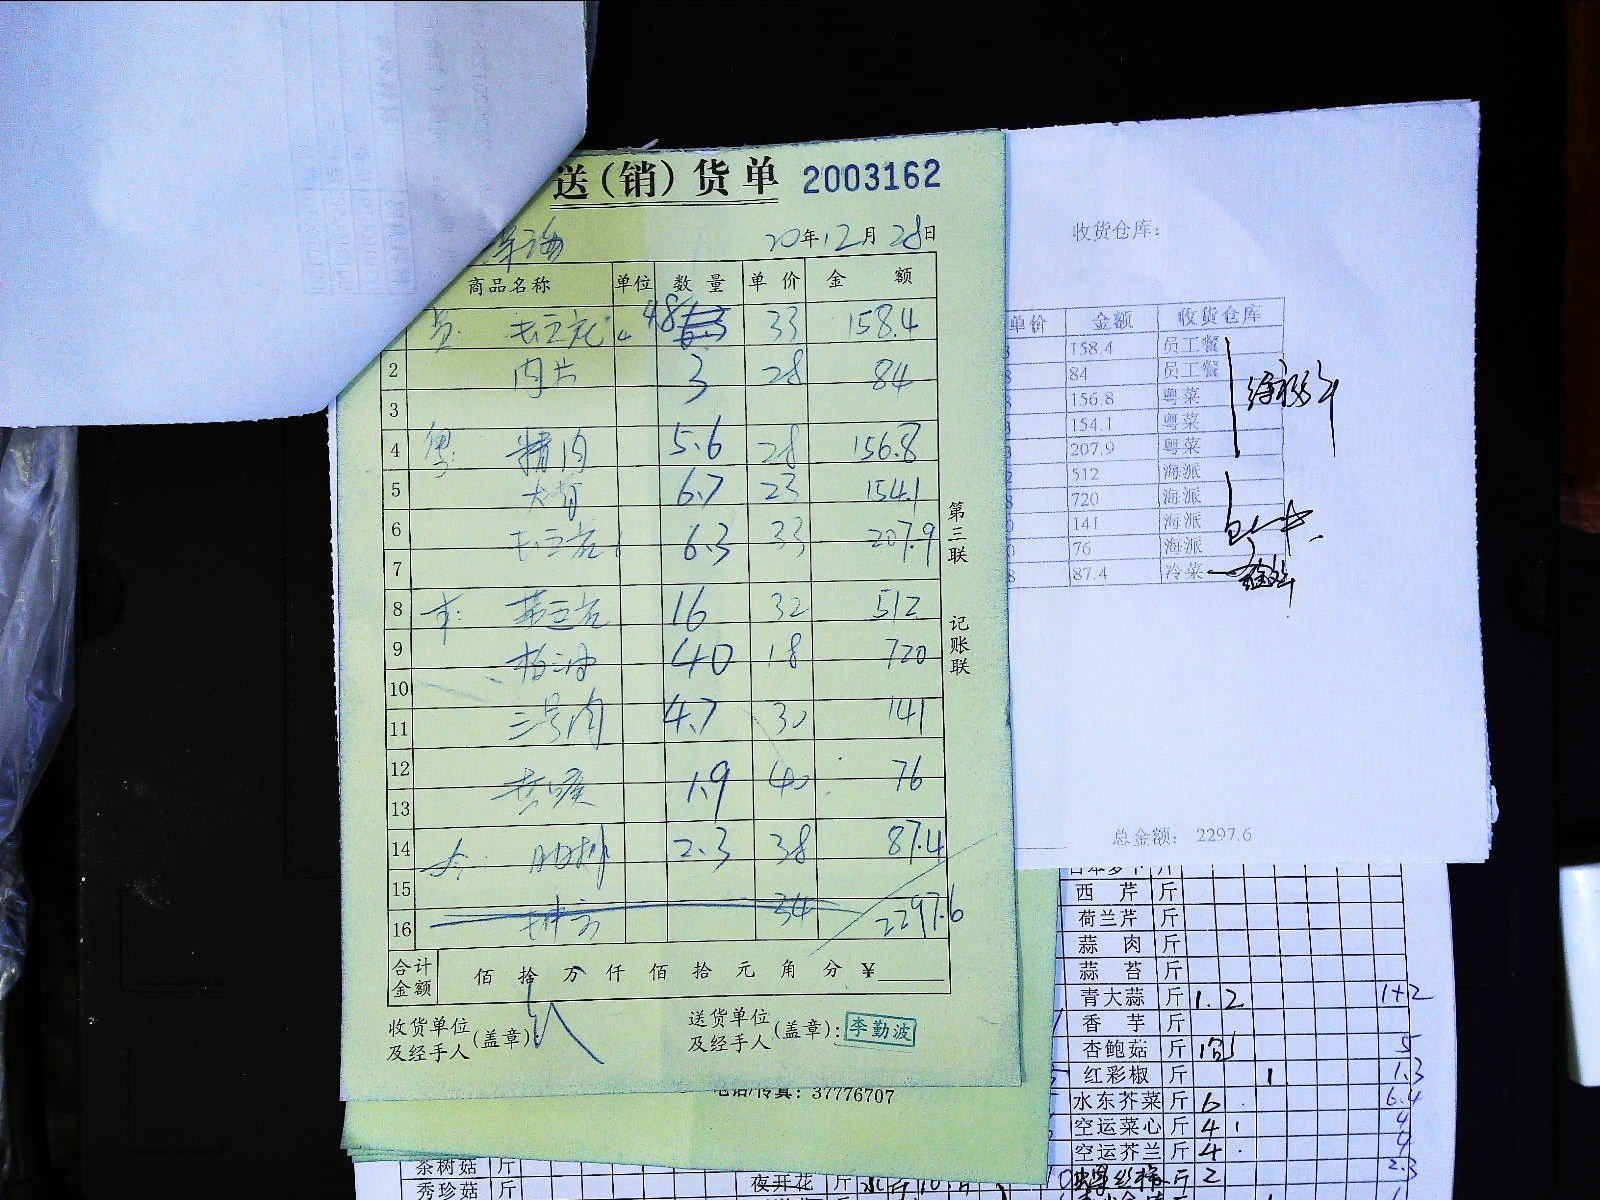 送(销)货单 2003162
20年12月28日
商品名称 单位 数量 单价 金额
4.8 33 158.4
2 肉片 3 28 84
3
4 精肉 5.6 28 156.8
5 6.7 23 154.1
6 6.3 33 207.9
7
8 16 32 512
9 40 18 720
10
11 三号肉 4.7 30 141
12 1.9 40 76
13
14 肋排 2.3 38 87.4
15
16 34 2297.6
合计金额 佰拾万仟佰拾元角分 ¥
收货单位及经手人(盖章):
送货单位及经手人(盖章): 李勤波
第三联 记账联
电话/传真: 37776707
收货仓库:
单价 金额 收货仓库
158.4 员工餐
84 员工餐
156.8 粤菜
154.1 粤菜
207.9 粤菜
512 海派
720 海派
141 海派
76 海派
87.4 冷菜
总金额: 2297.6
西芹 斤
荷兰芹 斤
蒜肉 斤
蒜苔 斤
青大蒜 斤 1.2 1+2
香芋 斤
杏鲍菇 斤 5
红彩椒 斤 1 1.3
水东芥菜 斤 6 6.4
空运菜心 斤 4 4
空运芥兰 斤 4 4
斤 2 2.3
茶树菇 斤
秀珍菇 斤
夜开花 斤